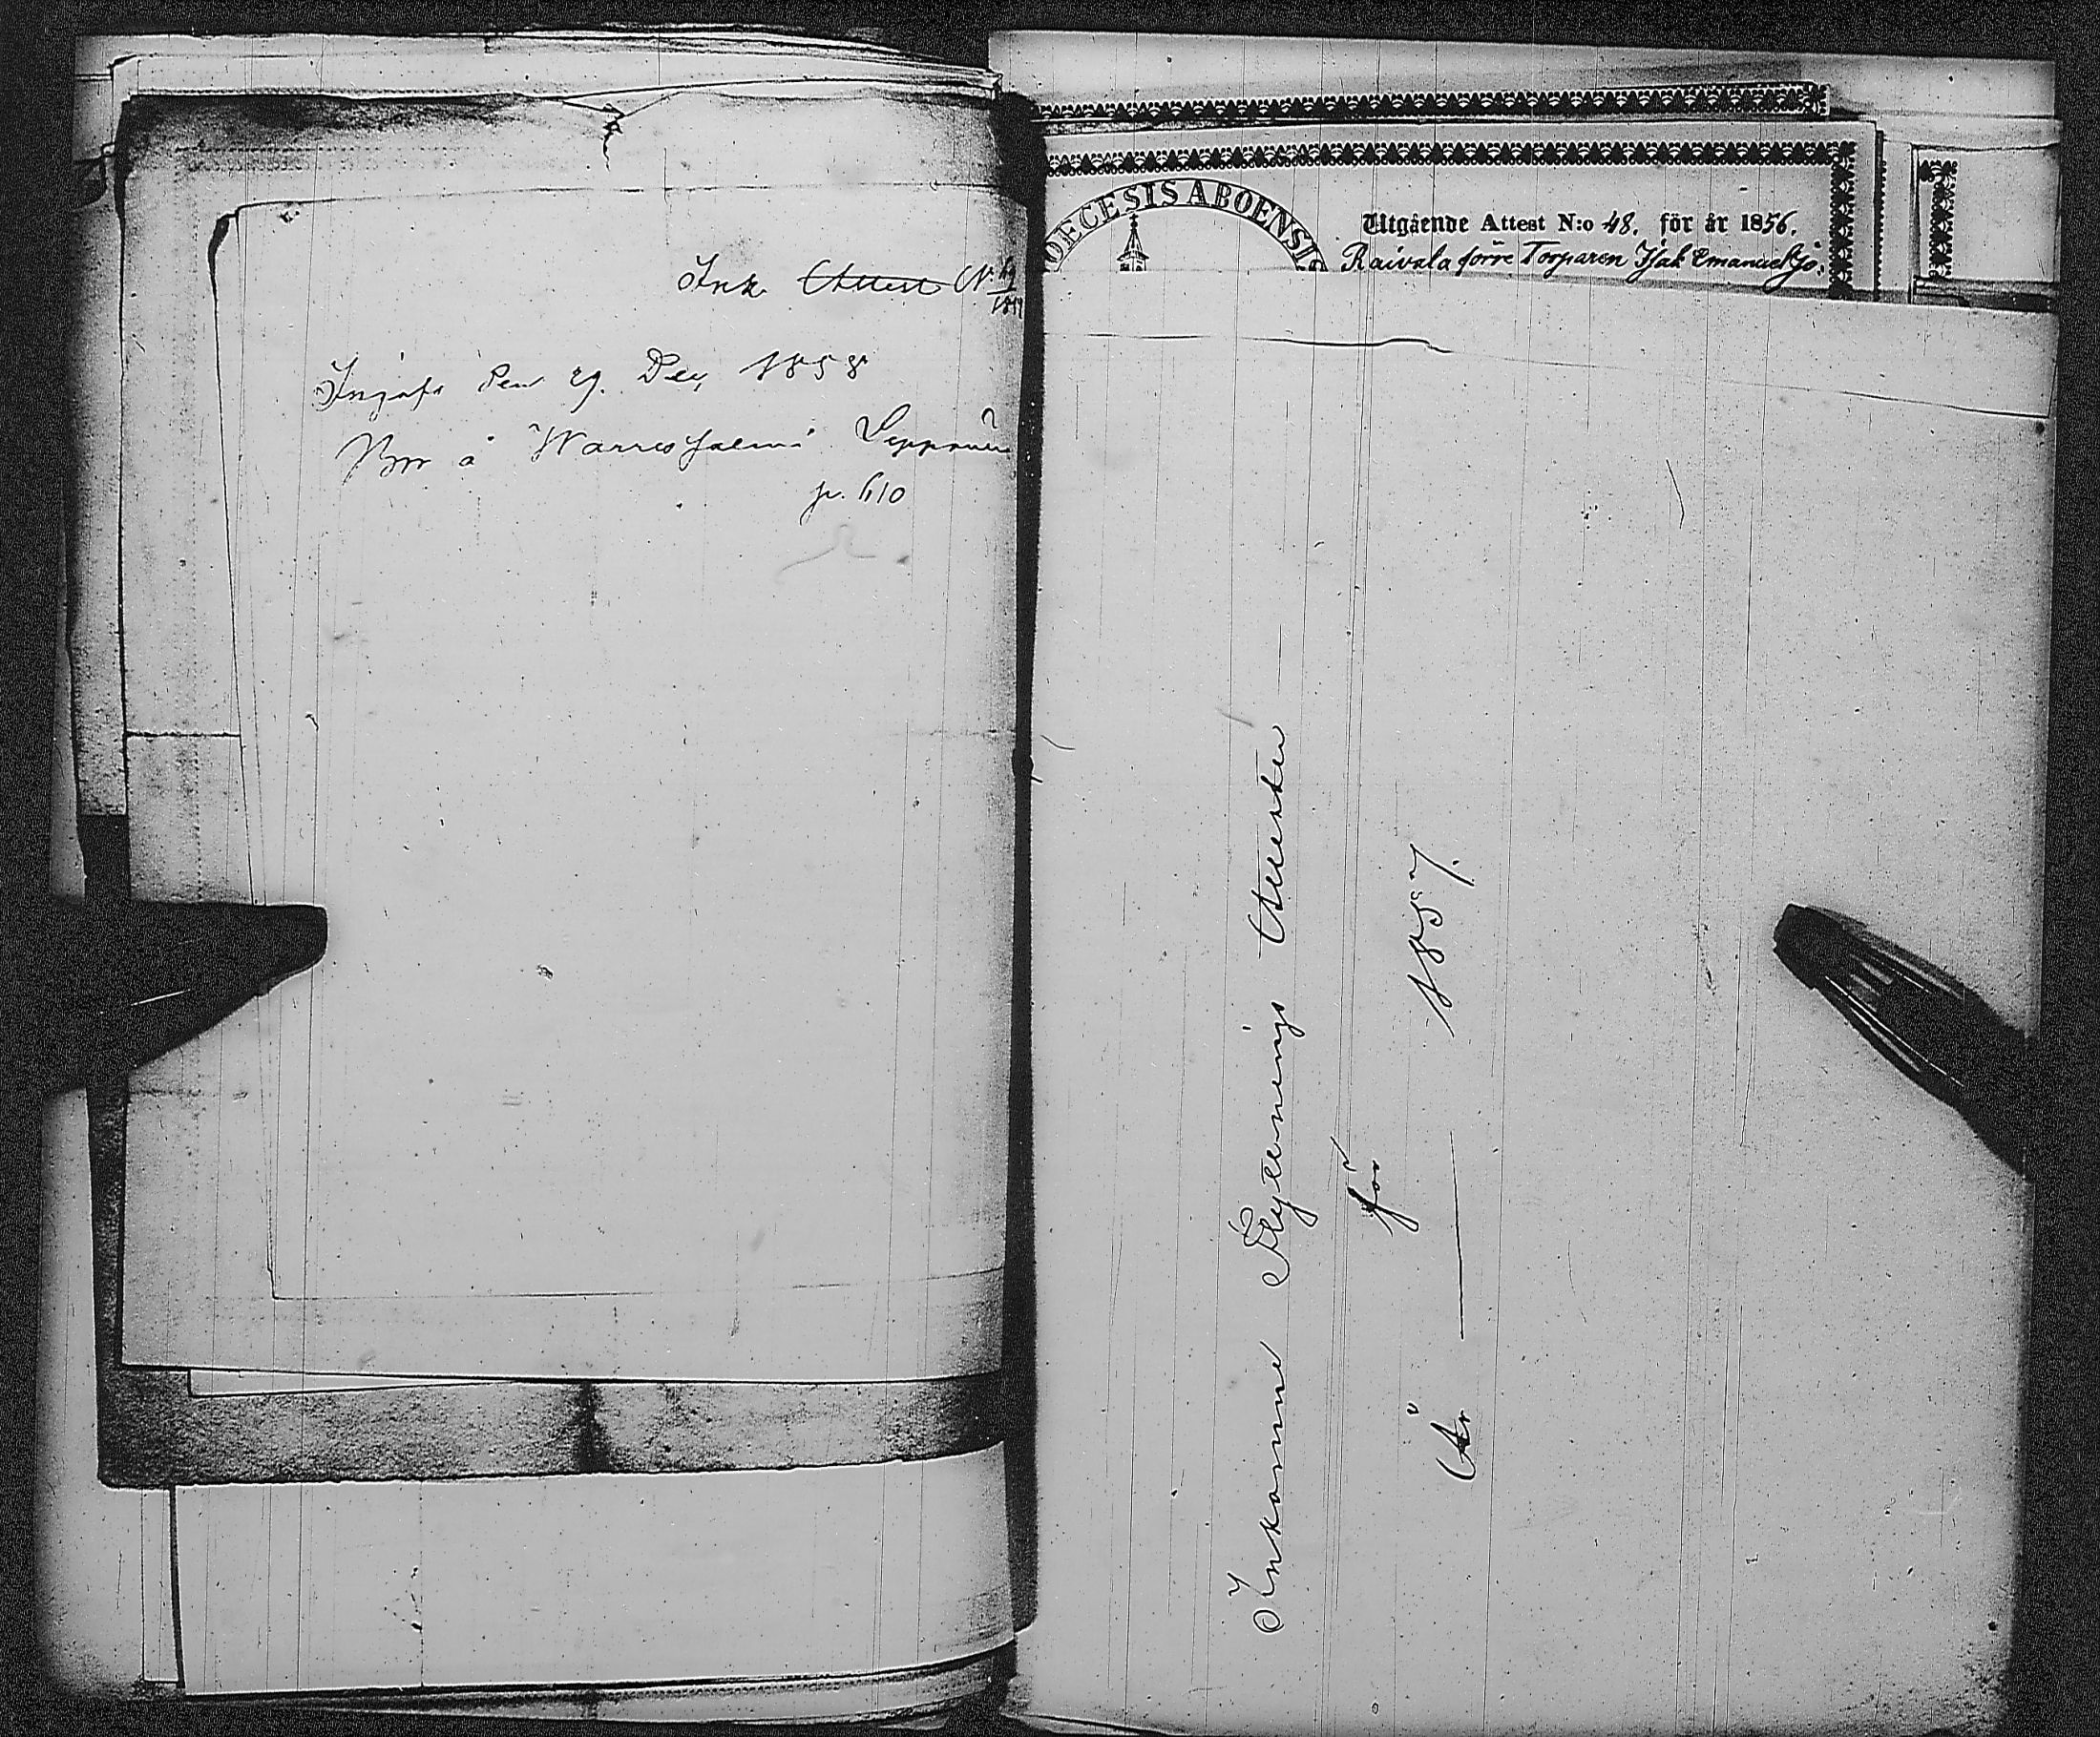 Ink. Attest N:
Ingaf. den 29. Dec. 1858
Bor å
p. 610
DIOECESIS ABOENSIS
Utgående Attest N:o 48. för år 1856.
Raivala förre Torparen Isak Emanuelss.
Inkomne Flyttnings Attester
för
År — 1857.